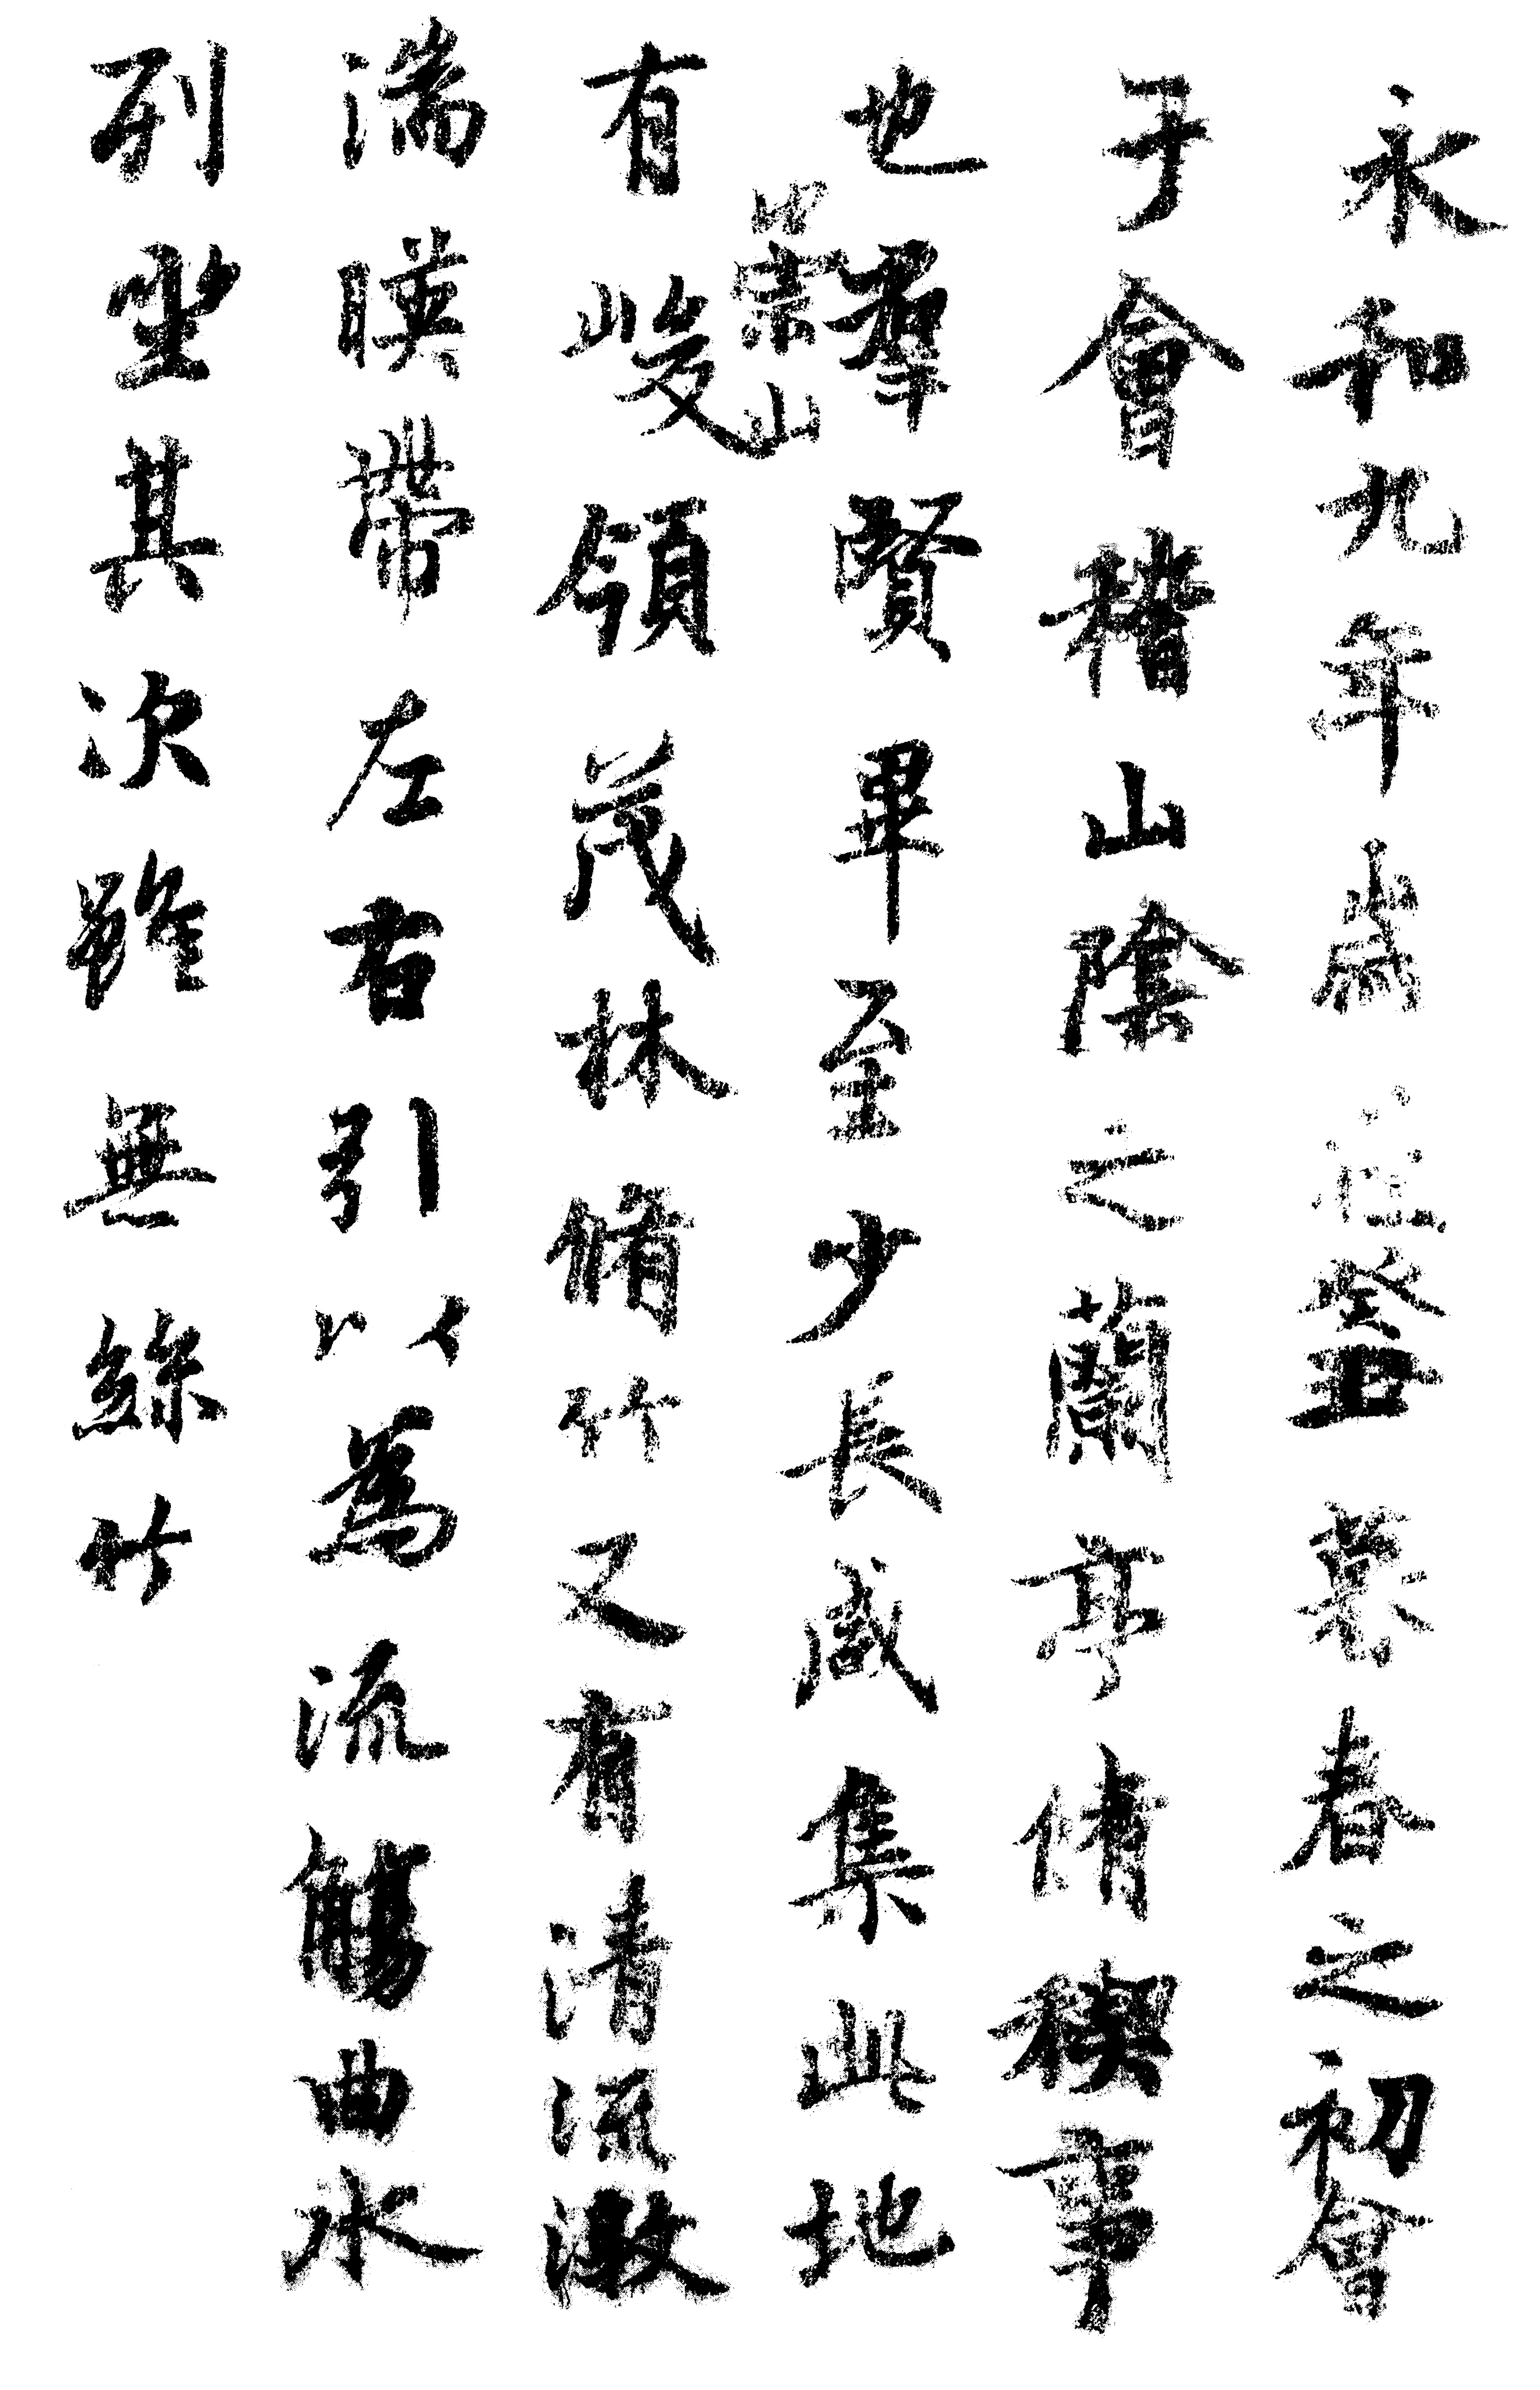 永和九年歲在癸丑暮春之初會
于會稽山陰之蘭亭脩稧事
也羣賢畢至少長咸集此地
有崇山峻領茂林脩竹又有清流激
湍暎帶左右引以為流觴曲水
列坐其次雖無絲竹